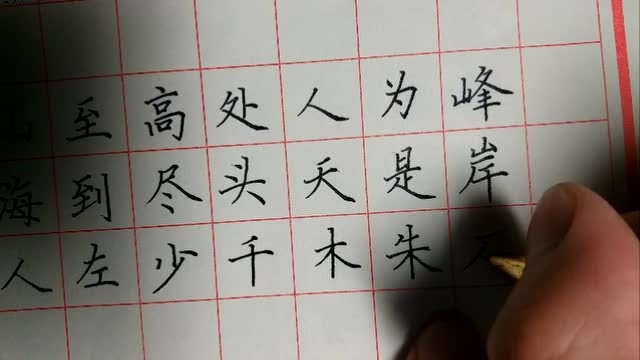 山至高处人为峰
海到尽头天是岸
人左少千木朱